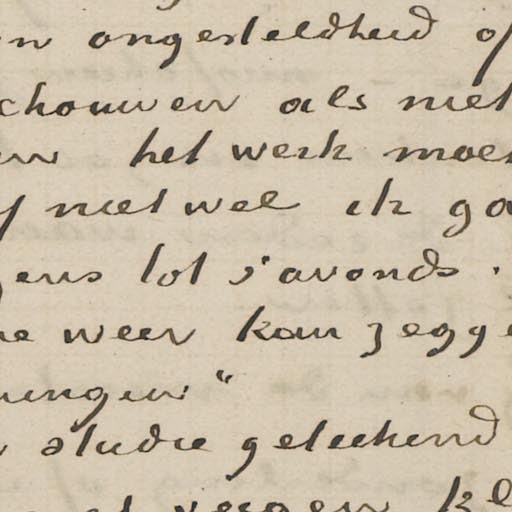 en ongesteldheid of
chouwen als niet
en het werk moet
of niet wel ik ga
gens tot s'avonds.
me weer kan zegge
ningen"
n studie geteekend